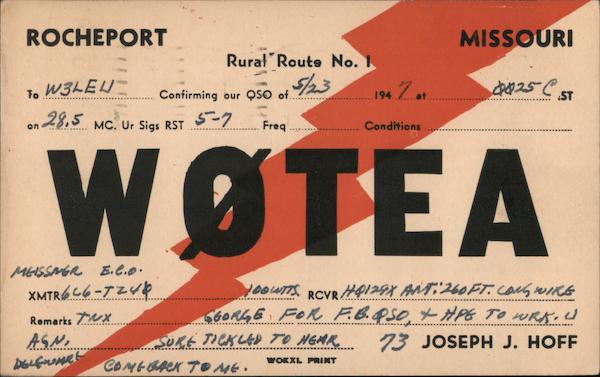 ROCHEPORT MISSOURI
Rural Route No. 1
To W3LEU Confirming our QSO of 5/23 1947 at 0025 C .ST
on 28.5 MC. Ur Sigs RST 5-7 Freq Conditions
WØTEA
MEISSNER E.C.O.
XMTR 6L6-TZ40 100WTTS RCVR HQ129X ANT: 260FT. LONG WIRE
Remarks TNX GEORGE FOR F.B. QSO, + HPE TO WRK. U
AGN. SURE TICKLED TO HEAR 73 JOSEPH J. HOFF
DELEWARE COMEBACK TO ME.
WOKXL PRINT